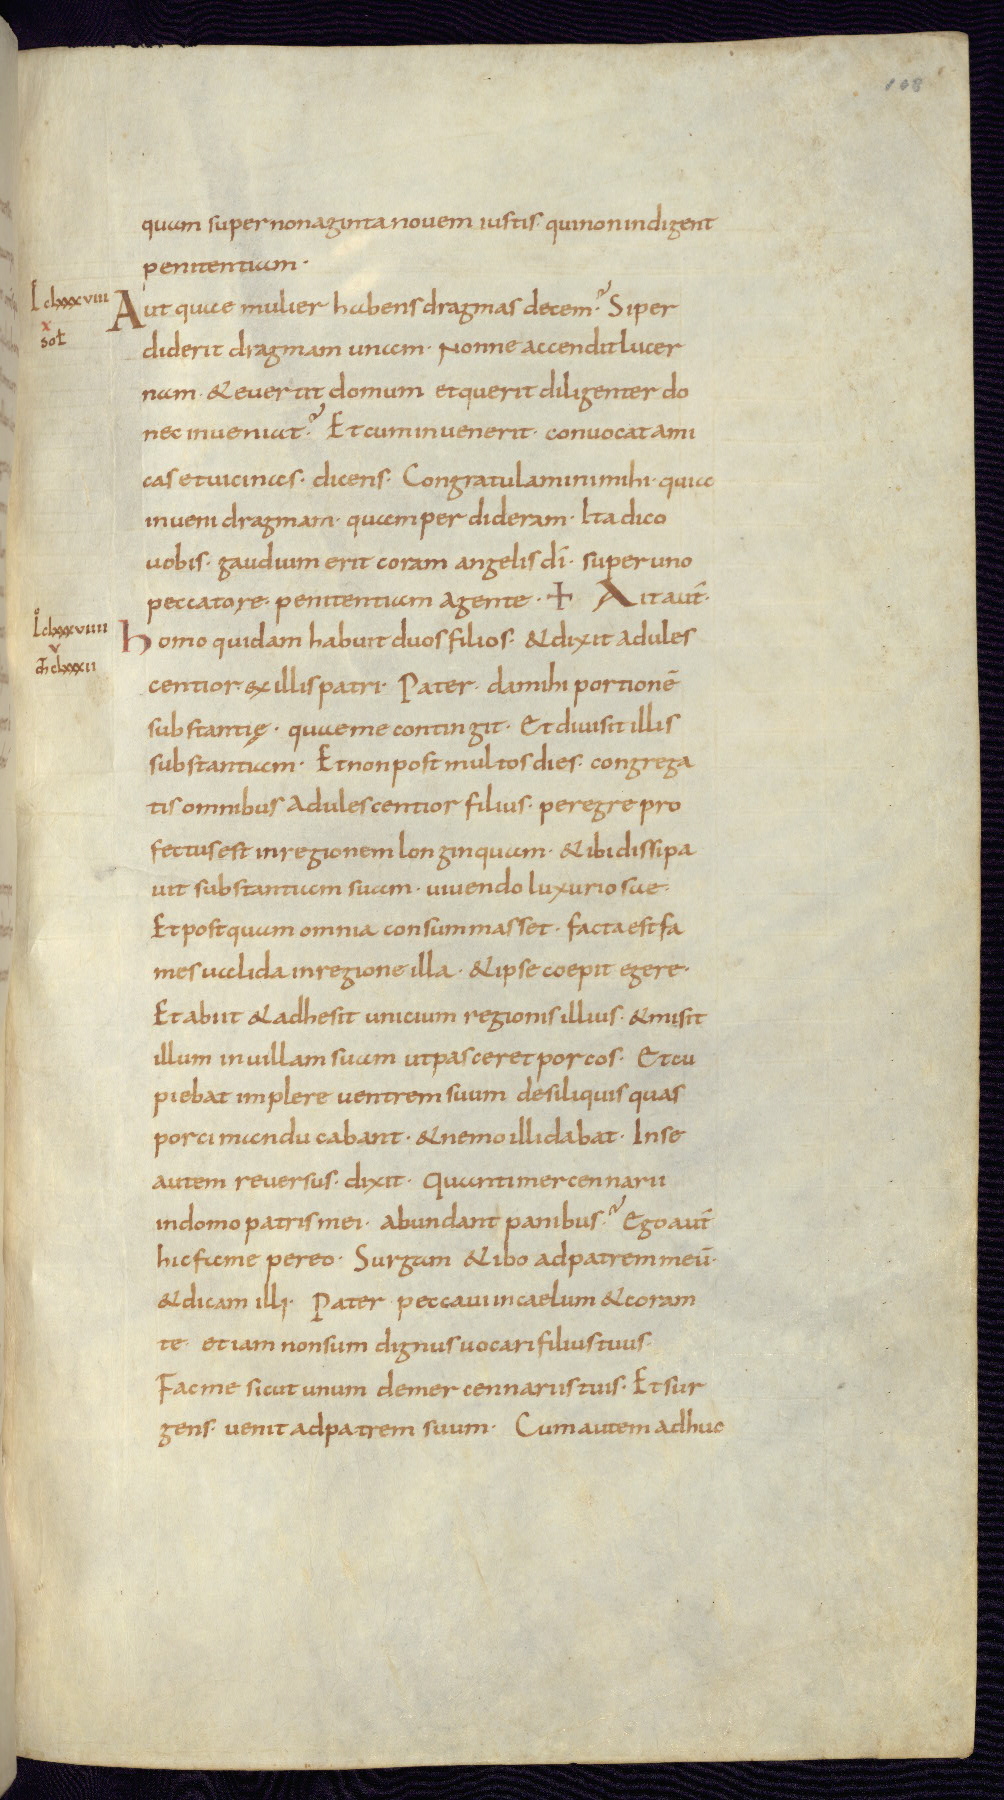 108
quam super nonaginta novem iustis · qui non indigent
penitentiam ·
L clxxxviii
x
sol
Aut quae mulier habens dragmas decem? Si per
diderit dragmam unam · Nonne accendit lucer
nam · & evertit domum et querit diligenter do
nec inveniat? Et cum invenerit · convocat ami
cas et vicinas · dicens · Congratulamini mihi · quia
inveni dragmam · quam perdideram · Ita dico
vobis · gaudium erit coram angelis dī · super uno
peccatore · penitentiam agente · + Ait aut̄ ·
L clxxxviiii
v
clxxxii
homo quidam habuit duos filios · & dixit adules
centior ex illis patri · Pater · da mihi portionē
substantię · quae me contingit · Et divisit illis
substantiam · Et non post multos dies · congrega
tis omnibus adulescentior filius · peregre pro
fectus est in regionem longinquam · & ibi dissipa
vit substantiam suam · vivendo luxuriosae ·
Et postquam omnia consummasset · facta est fa
mes valida in regione illa · & ipse coepit egere ·
Et abiit & adhesit uni civium regionis illius · & misit
illum in villam suam ut pasceret porcos · Et cu
piebat implere ventrem suum de siliquis quas
porci manducabant · & nemo illi dabat · In se
autem reversus · dixit · Quanti mercennarii
in domo patris mei · abundant panibus? Ego aut̄
hic fame pereo · Surgam & ibo ad patrem meū ·
& dicam illi · Pater peccavi in caelum & coram
te · et iam non sum dignus vocari filius tuus ·
Fac me sicut unum de mercennariis tuis · Et sur
gens · venit ad patrem suum · Cum autem adhuc